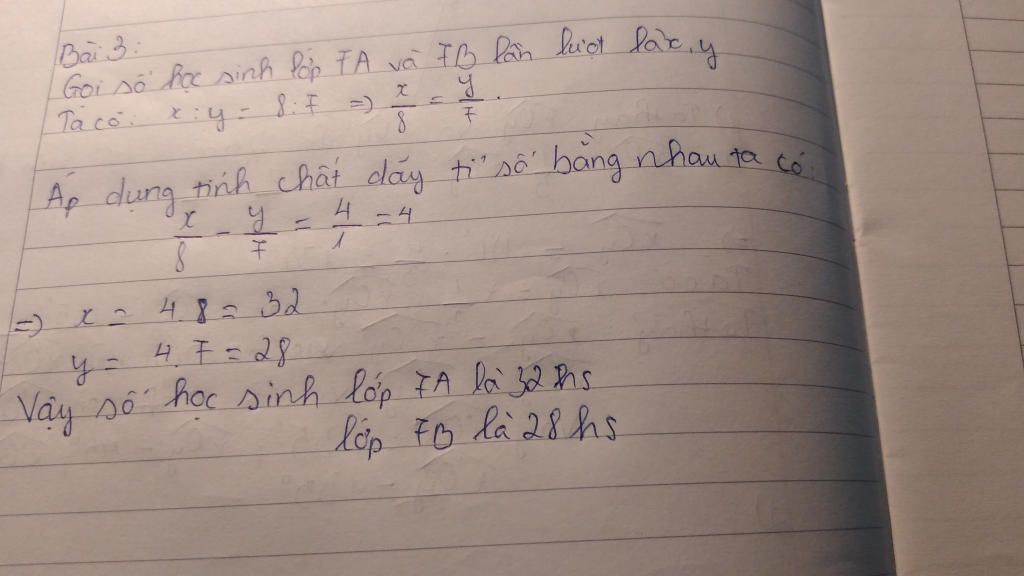 Bài 3:
Gọi số học sinh lớp 7A và 7B lần lượt là x, y
Ta có: x : y = 8 : 7 => x/8 = y/7.
Áp dụng tính chất dãy tỉ số bằng nhau ta có:
x/8 - y/7 = 4/1 = 4
=> x = 4.8 = 32
y = 4.7 = 28
Vậy số học sinh lớp 7A là 32 hs
lớp 7B là 28 hs